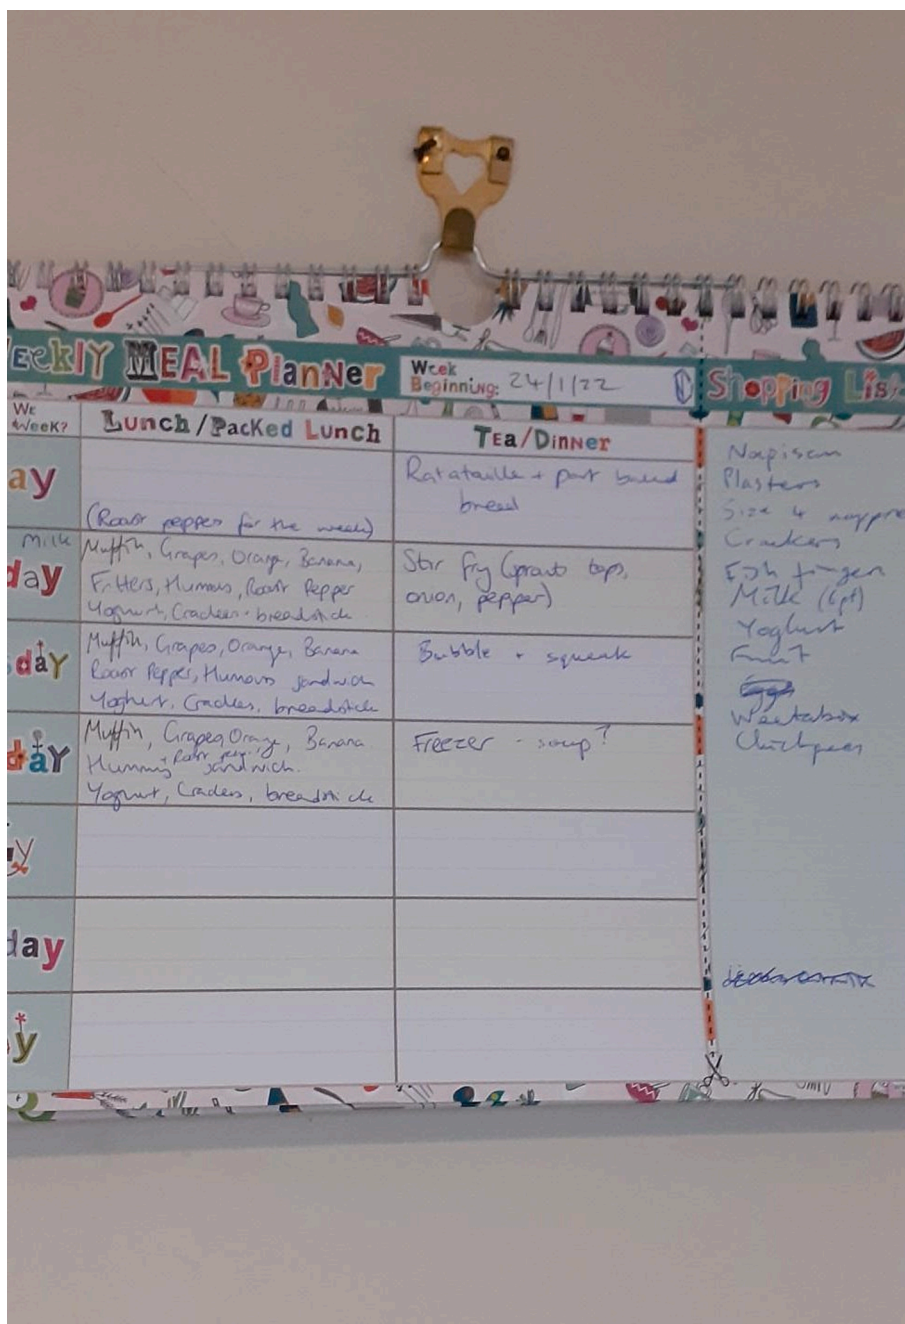 eekly Meal Planner
Week
Beginning: 24/1/22
Shopping Lis
We
Week?
Lunch/Packed Lunch
Tea/Dinner
ay
(Roast pepper for the week)
Ratataille + part baked
bread
Milk
day
Muffin, Grapes, Orange, Banana,
Fritters, Humous, Roast Pepper
Yoghurt, Crackers breadstick
Stir fry (sprout tops,
onion, pepper)
sday
Muffin, Grapes, Orange, Banana
Roast Pepper, Humous sandwich
Yoghurt, Crackers, breadstick
Bubble + squeak
day
Muffin, Grapes, Orange, Banana
Hummus + Roast pepper sandwich.
Yoghurt, Crackers, breadstick
Freezer - soup?
y
day
y
Napisan
Plasters
Size 4 nappie
Crackers
Fish fingers
Milk (6pt)
Yoghurt
Fruit
Eggs
Weetabix
Chickpeas